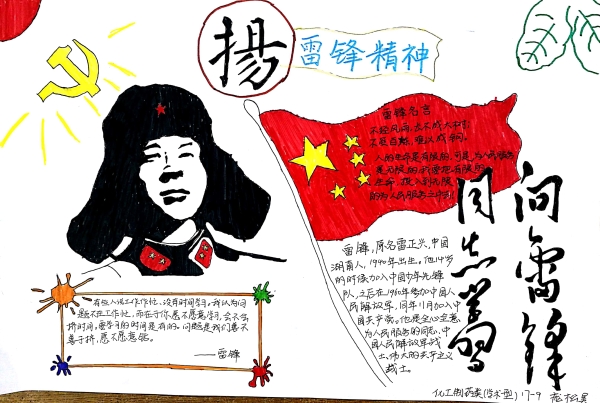 揚
雷锋精神
雷锋名言
不经风雨,长不成大树;
不受百炼,难以成钢。
人的生命是有限的,可是,为人民服务
是无限的,我要把有限的
生命,投入到无限
的为人民服务之中去
向雷锋
同志学习
雷锋,原名雷正兴,中国
湖南人,1940年出生。他14岁
的时候加入中国少年先锋
队,之后在1960年参加中国人
民解放军,同年11月加入中
国共产党。他是全心全意
为人民服务的同志,中
国人民解放军战
士,伟大的共产主义
战士。
有些人说工作忙,没有时间学习。我认为问
题不在工作忙,而在于你愿不愿意学习,会不会
挤时间。要学习的时间是有的。问题是我们善不
善于挤,愿不愿意钻。
——雷锋
化工制药类(学术型) 17-9